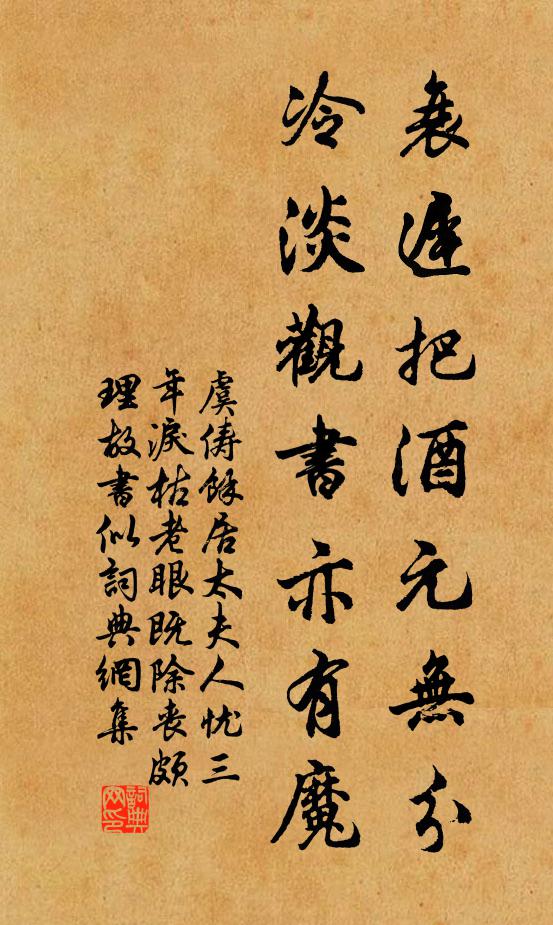 衰遲把酒元無分
冷淡觀書亦有魔
虞儔餘居太夫人忧三
年淚枯老眼既除喪頗
理故書似詞典網集
詞典网印